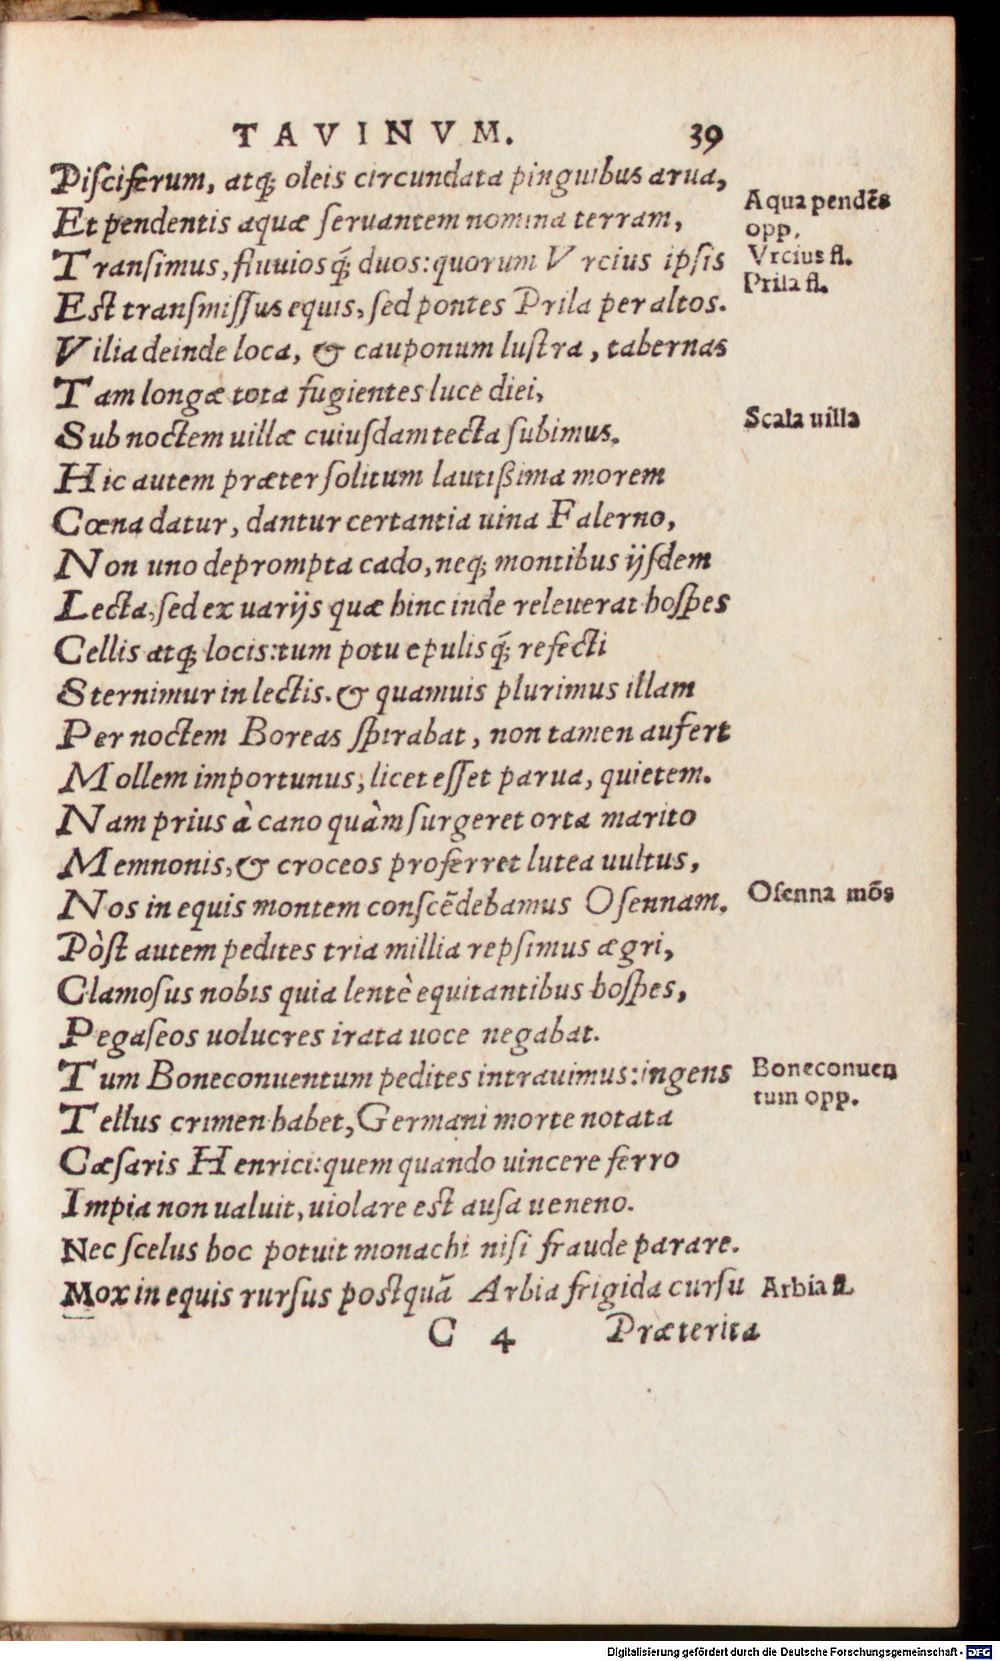 TAVINVM. 39
Piſciferum, atq; oleis circundata pinguibus arua,
Et pendentis aquæ ſeruantem nomina terram,
Aqua pendēs
opp.
Tranſimus, fluuiosq́; duos: quorum Vrcius ipſis
Vrcius fl.
Eſt tranſmiſſus equis, ſed pontes Prila per altos.
Prila fl.
Vilia deinde loca, & cauponum luſtra, tabernas
Tam longæ tota fugientes luce diei,
Sub noctem uillæ cuiuſdam tecta ſubimus.
Scala uilla
Hic autem præter ſolitum lautißima morem
Cœna datur, dantur certantia uina Falerno,
Non uno deprompta cado, neq; montibus ijſdem
Lecta, ſed ex uarijs quæ hinc inde releuerat hoſpes
Cellis atq; locis: tum potu epulisq́; refecti
Sternimur in lectis. & quamuis plurimus illam
Per noctem Boreas ſpirabat, non tamen aufert
Mollem importunus, licet eſſet parua, quietem.
Nam prius à cano quàm ſurgeret orta marito
Memnonis, & croceos proferret lutea uultus,
Nos in equis montem conſcēdebamus Oſennam.
Oſenna mōs
Pòſt autem pedites tria millia repſimus ægri,
Clamoſus nobis quia lentè equitantibus hoſpes,
Pegaſeos uolucres irata uoce negabat.
Tum Boneconuentum pedites intrauimus: ingens
Boneconuen
tum opp.
Tellus crimen habet, Germani morte notata
Cæſaris Henrici: quem quando uincere ferro
Impia non ualuit, uiolare eſt auſa ueneno.
Nec ſcelus hoc potuit monachi niſi fraude parare.
Mox in equis rurſus poſtquā Arbia frigida curſu
Arbia fl.
C 4 Præterita
Digitalisierung gefördert durch die Deutsche Forschungsgemeinschaft - DFG